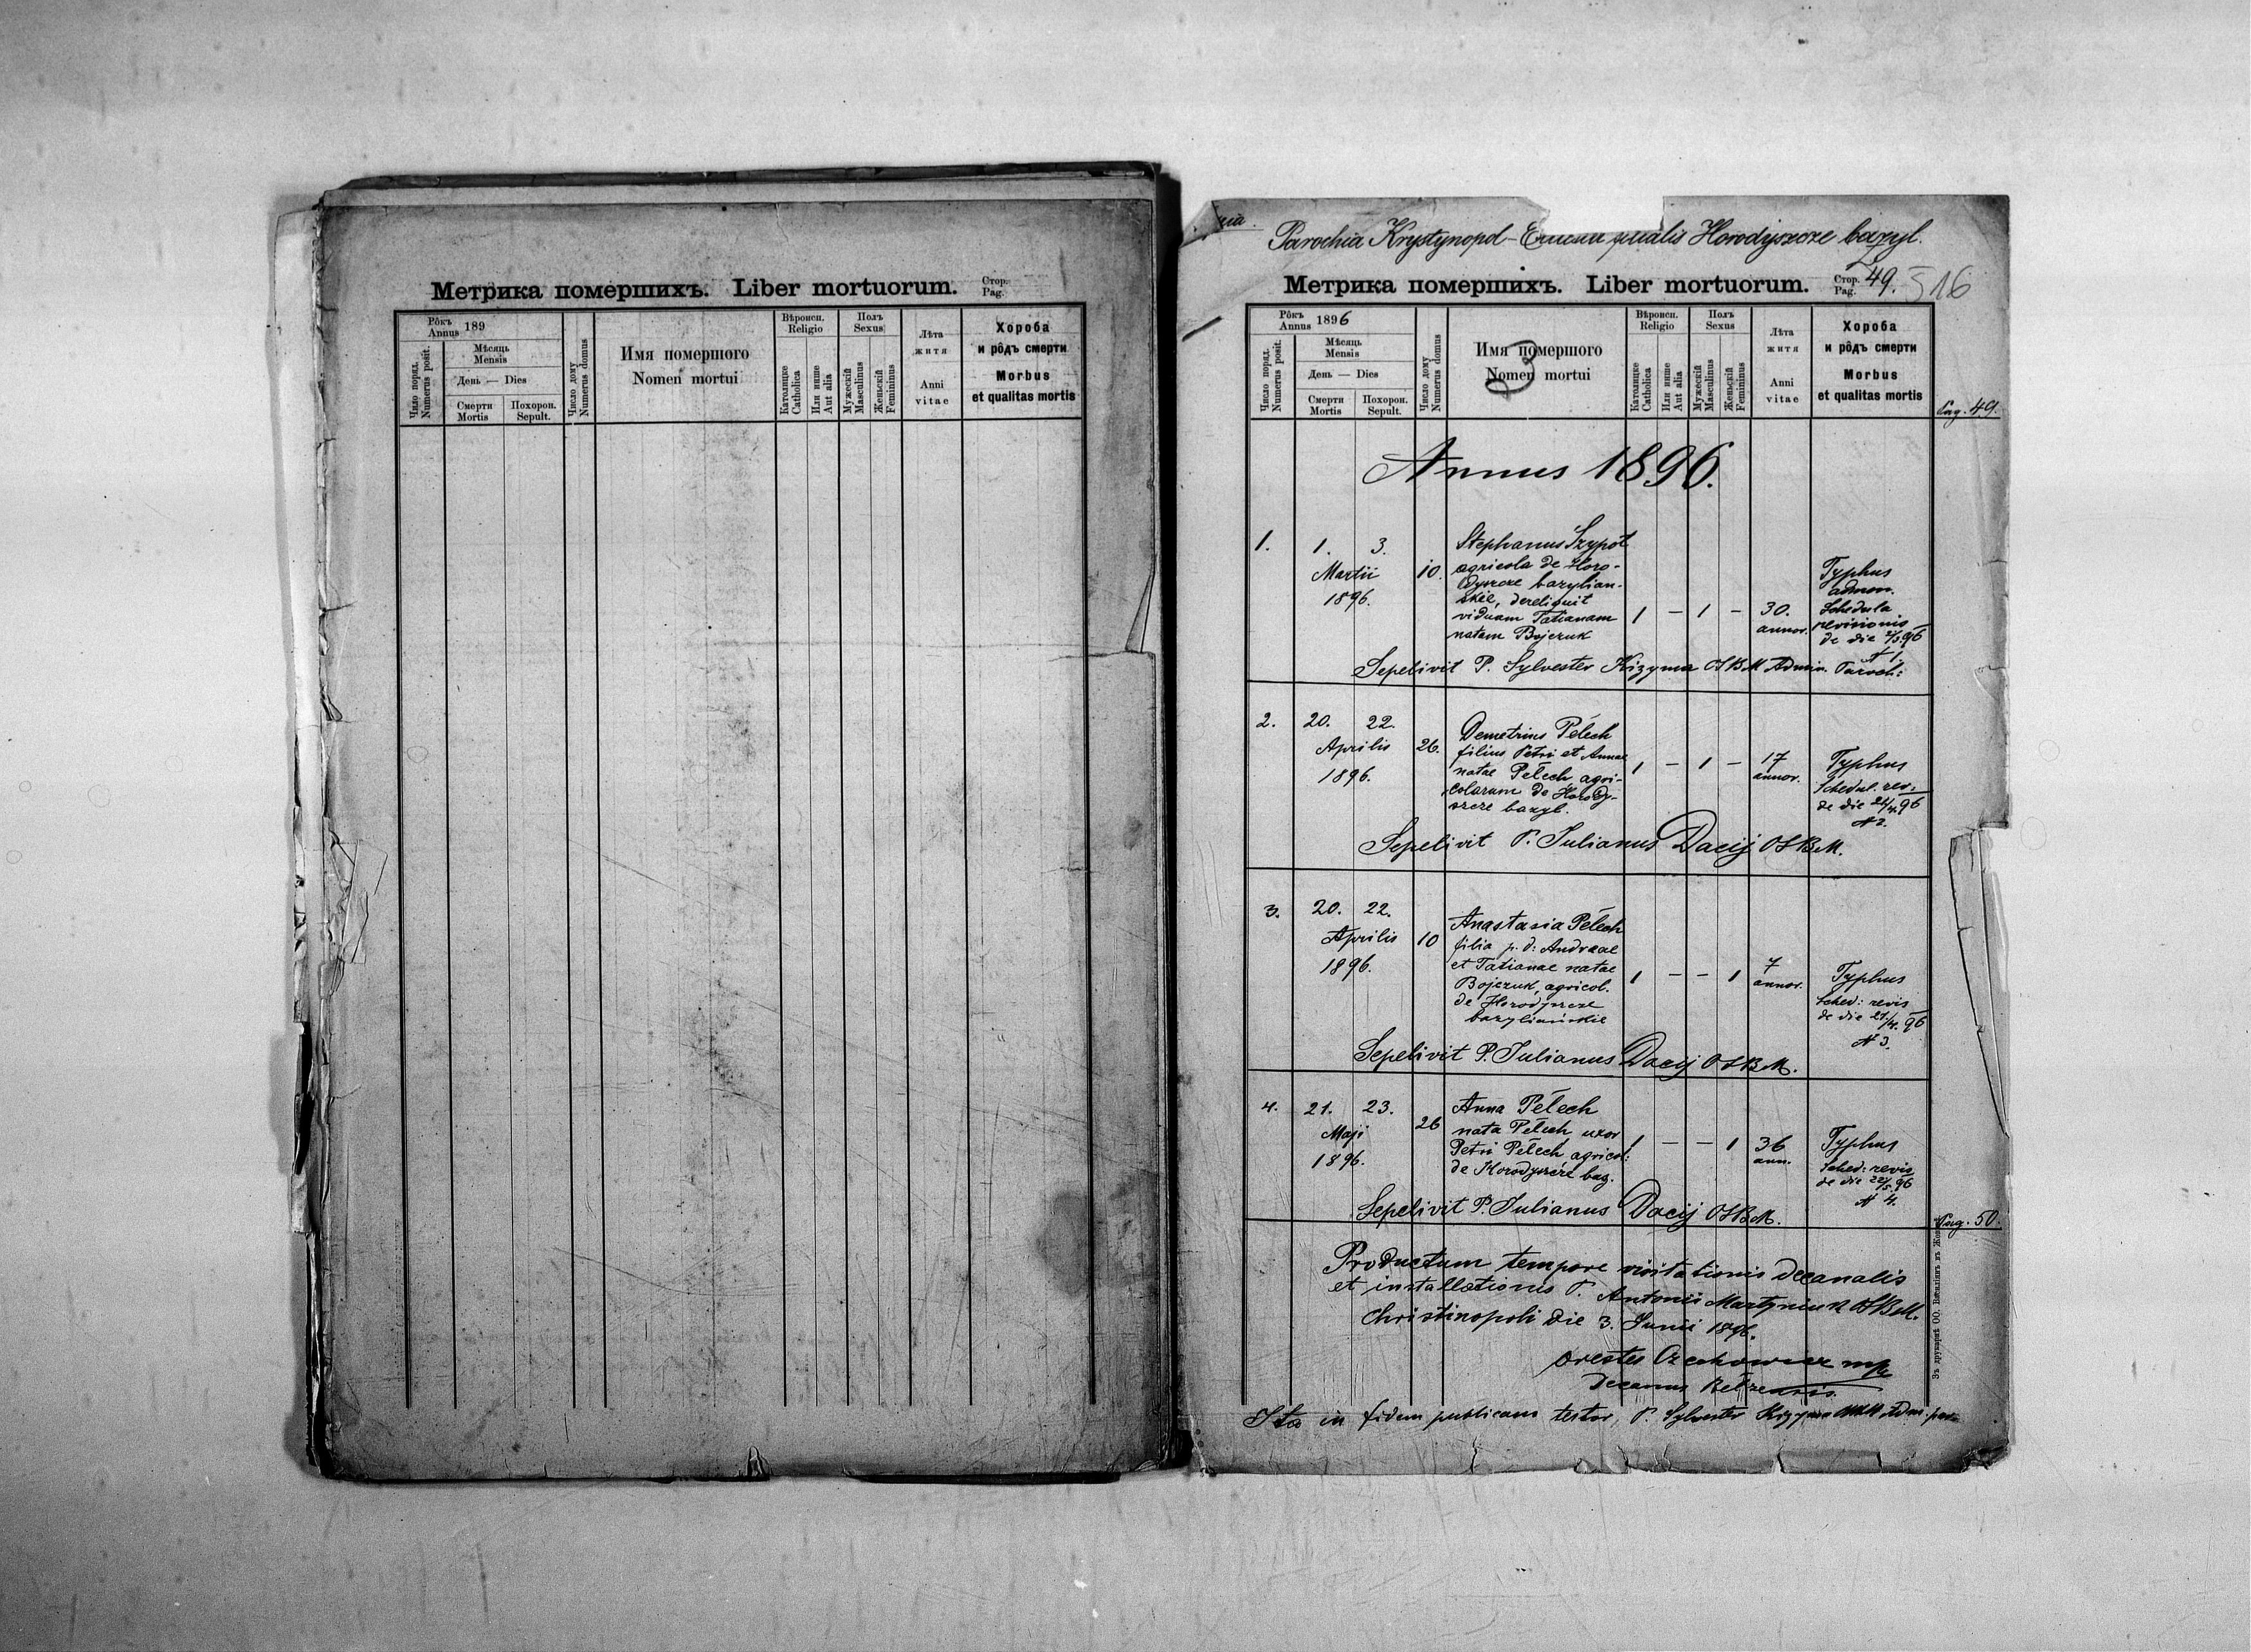 Метрика помершихъ. Liber mortuorum. Стор. Pag.
Рôкъ Annus 189
Число поряд. Numerus posit.
Мѣсяць Mensis
День — Dies
Смерти Mortis
Похорон. Sepult.
Число дому Numerus domus
Имя помершого
Nomen mortui
Вѣроисп. Religio
Католицке Catholica
Или инше Aut alia
Полъ Sexus
Мужескій Masculinus
Женьскій Femininus
Лѣта житя
Anni vitae
Хороба
и рôдъ смерти
Morbus
et qualitas mortis
Parochia Krystynopol - Horodyszcze bazyl.
Метрика помершихъ. Liber mortuorum. Стор. Pag. 49. 516
Рôкъ Annus 1896
Число поряд. Numerus posit.
Мѣсяць Mensis
День — Dies
Смерти Mortis
Похорон. Sepult.
Число дому Numerus domus
Имя помершого
Nomen mortui
Вѣроисп. Religio
Католицке Catholica
Или инше Aut alia
Полъ Sexus
Мужескій Masculinus
Женьскій Femininus
Лѣта житя
Anni vitae
Хороба
и рôдъ смерти
Morbus
et qualitas mortis
Pag. 49.
Annus 1896.
1. 1. 3. Martii 1896. 10.
Stephanus Szypot
agricola de Horo-
dyszcze bazylian-
skie, dereliquit
viduam Tatianam
natam Bojczuk
1 — 1 — 30. annor.
Typhus
admon.
Schedula
revisionis
de die 2/3 96
N 1.
Sepelivit P. Sylvester Kizyma OSBM Admin. Paroch:
2. 20. 22. Aprilis 1896. 26.
Demetrius Pełech
filius Petri et Annae
natae Pełech agri-
colarum de Horody-
szcze bazyl.
1 — 1 — 17 annor.
Typhus
Schedul. rev:
de die 21/4 96
N 2.
Sepelivit P. Julianus Dacij OSBM.
3. 20. 22. Aprilis 1896. 10
Anastasia Pełech
filia p. d: Andreae
et Tatianae natae
Bojczuk, agricol.
de Horodyszcze
bazyliańskie
1 — — 1 7 annor.
Typhus
Sched: revis
de die 21./4. 96
N 3.
Sepelivit P. Julianus Dacij OSBM.
4. 21. 23. Maji 1896. 26
Anna Pełech
nata Pełech uxor
Petri Pełech agricol:
de Horodyszcze baz.
1 — — 1 36 ann.
Typhus
Sched: revis
de die 22/5 96
N 4.
Sepelivit P. Julianus Dacij OSBM.
Pag. 50.
Productum tempore visitationis decanalis
et installationis P. Antonii Martyniuk OSBM.
Christinopoli die 3. Junii 1896.
Orestes Czechowicz mp
Decanus Belzensis.
Ita in fidem publicam testor, P. Sylvester Kizyma OSBM Adm.